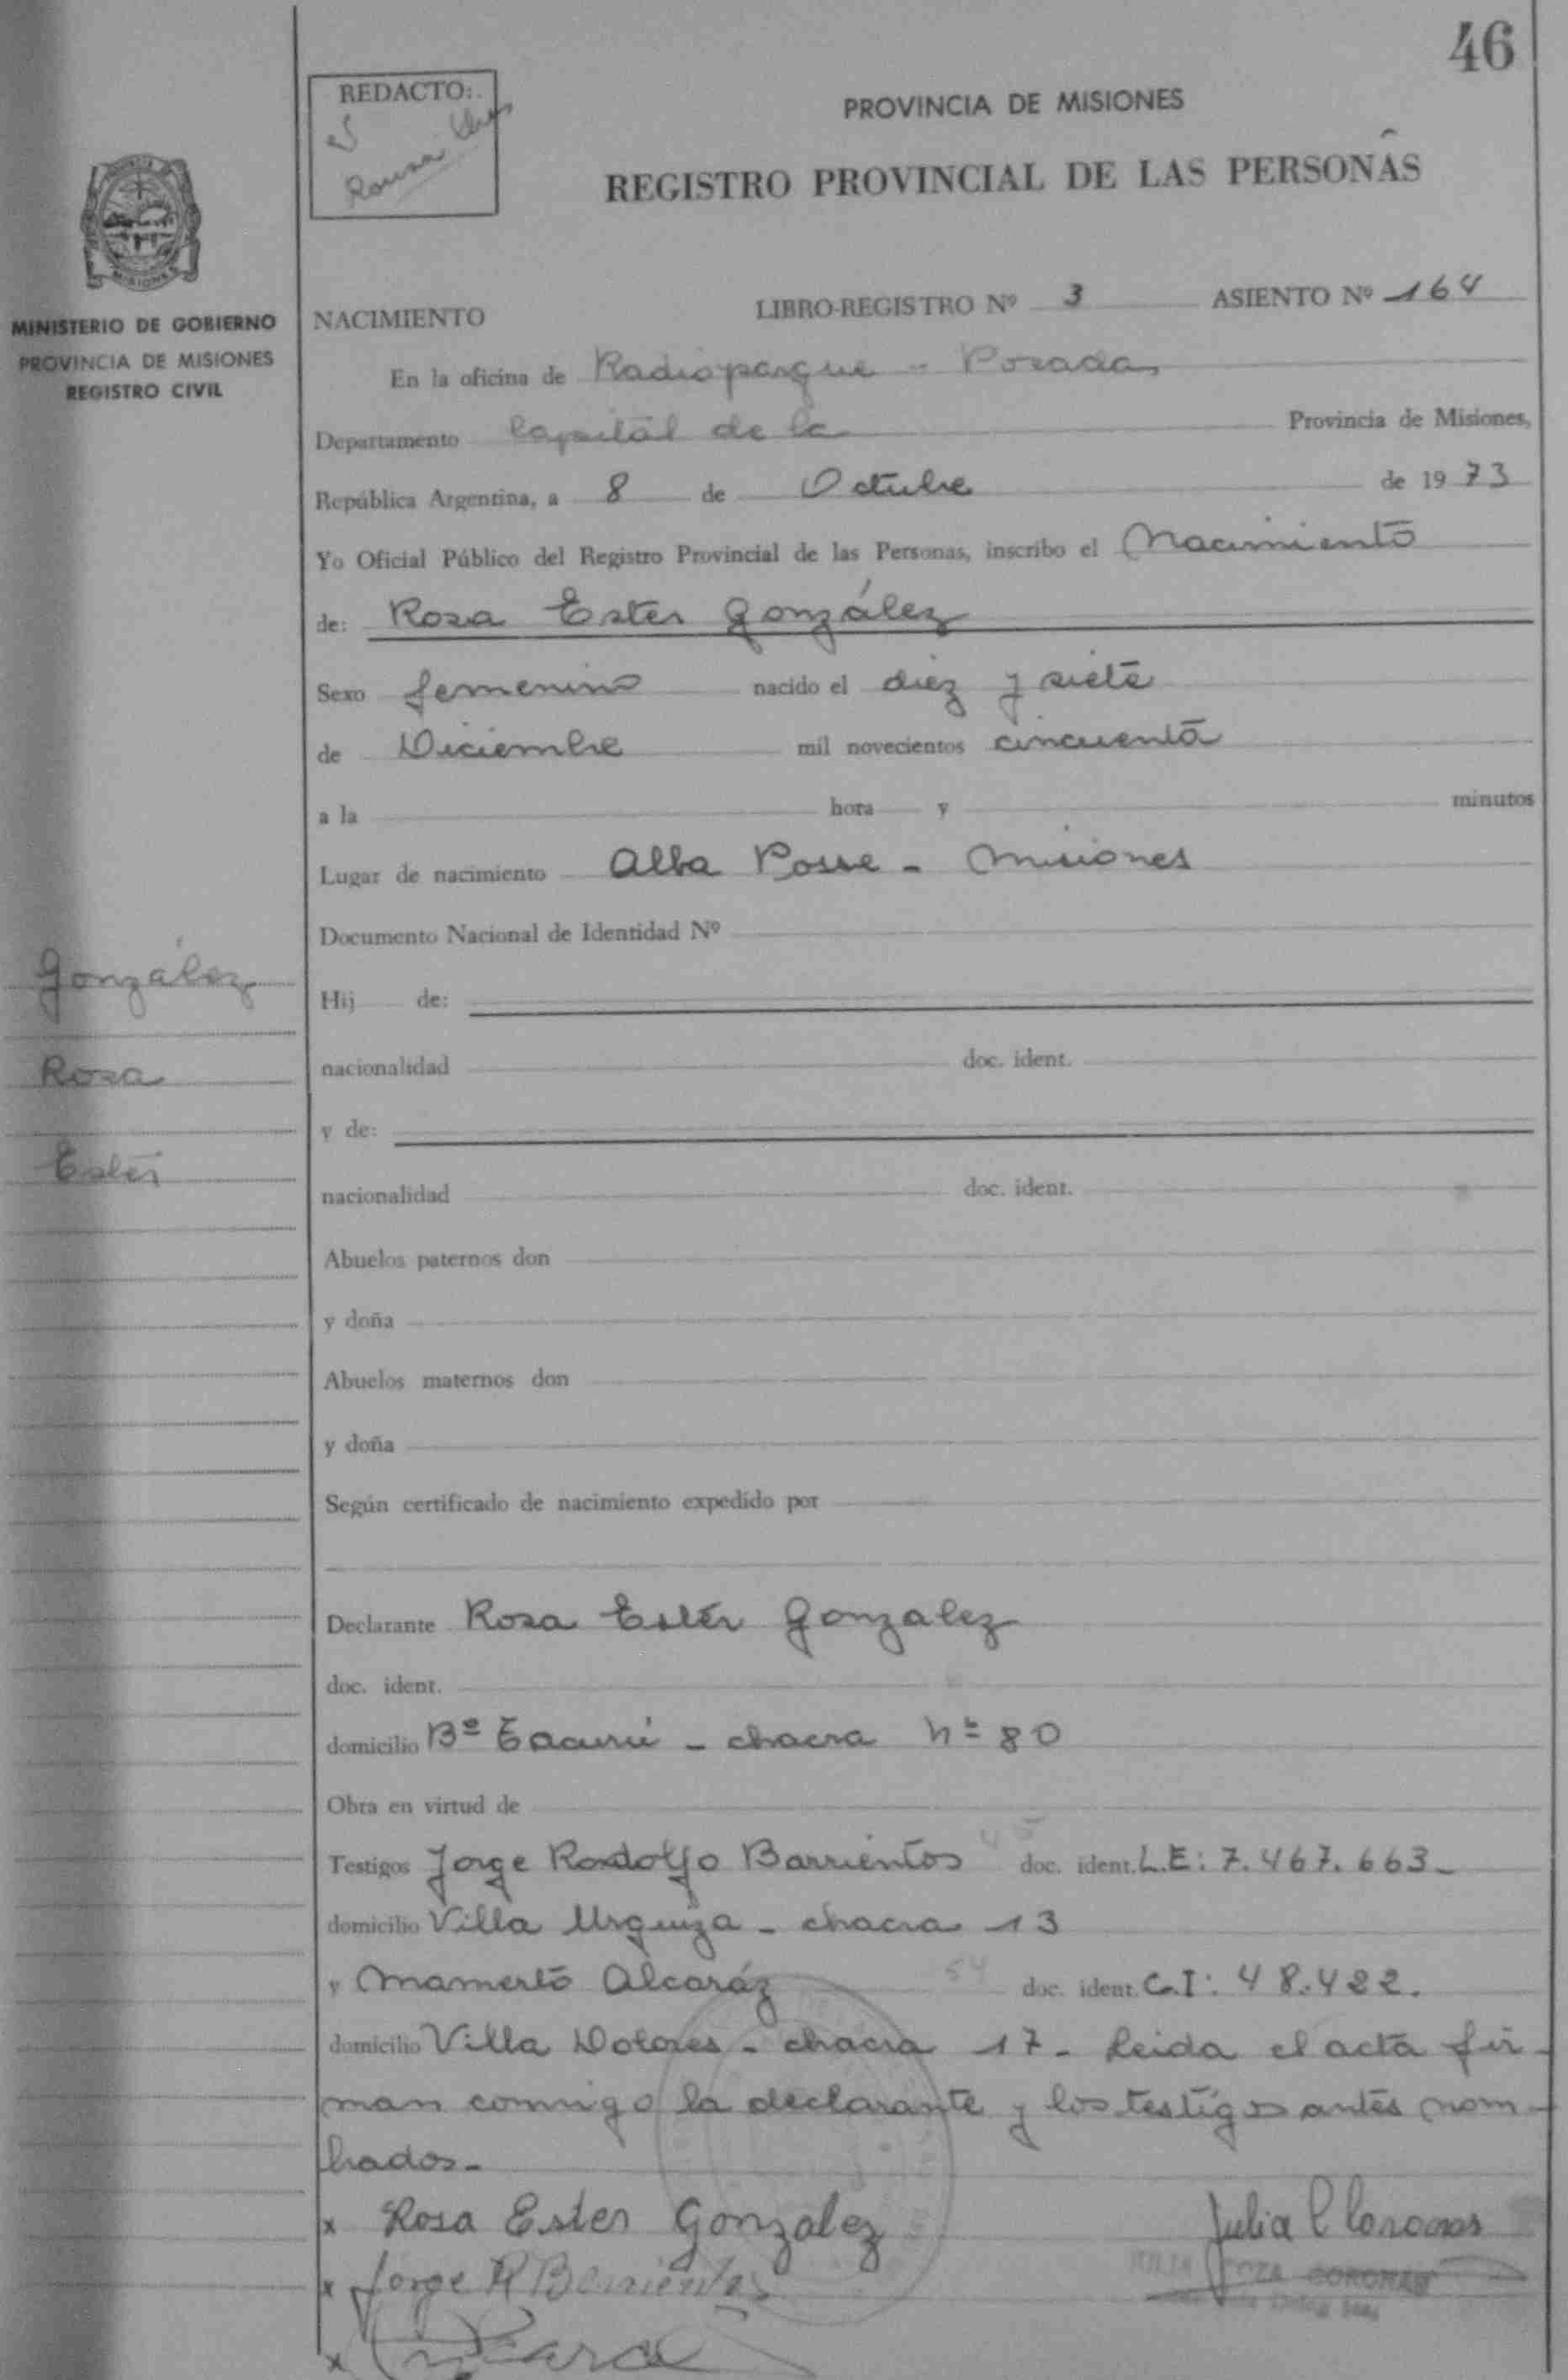 46
REDACTO:
PROVINCIA DE MISIONES
REGISTRO PROVINCIAL DE LAS PERSONAS
MISIONES
MINISTERIO DE GOBIERNO
PROVINCIA DE MISIONES
REGISTRO CIVIL
NACIMIENTO LIBRO-REGISTRO Nº 3 ASIENTO Nº 164
En la oficina de Radioparque - Posadas
Departamento Capital de la Provincia de Misiones,
República Argentina, a 8 de Octubre de 1973
Yo Oficial Público del Registro Provincial de las Personas, inscribo el Nacimiento
de: Rosa Ester González
Sexo femenino nacido el diez y siete
de Diciembre mil novecientos cincuenta
a la hora y minutos
Lugar de nacimiento Alba Posse - Misiones
Documento Nacional de Identidad Nº
González
Hij de:
Rosa
nacionalidad doc. ident.
y de:
Ester
nacionalidad doc. ident.
Abuelos paternos don
y doña
Abuelos maternos don
y doña
Según certificado de nacimiento expedido por
Declarante Rosa Ester Gonzalez
doc. ident.
domicilio Bº Tacurú - chacra Nº 80
Obra en virtud de
Testigos Jorge Rodolfo Barrientos 45 doc. ident. L.E: 7.467.663-
domicilio Villa Urquiza - chacra 13
y Mamerto Alcaráz 54 doc. ident. C.I: 48.422.
domicilio Villa Dolores - chacra 17- Leida el acta fir-
man conmigo la declarante y los testigos antes nom-
brados-
x Rosa Ester Gonzalez
Julia C Coronas
x Jorge R Barrientos
JULIA COZA CORONAS
x